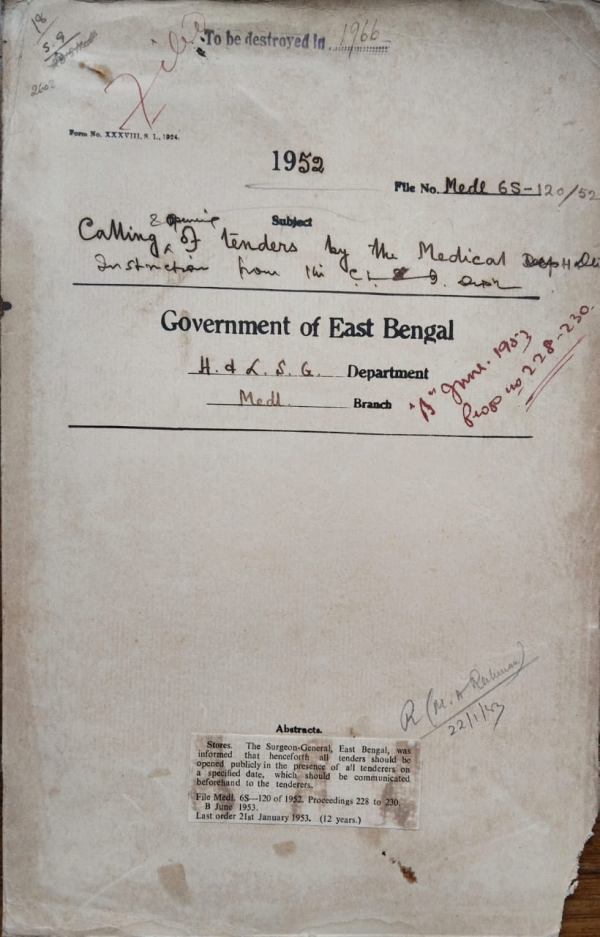 18
5-9
2602
File
To be destroyed in 1966
Form No. XXXVIII, S. I., 1924.
1952
File No. Medl 6S-120/52
Subject
& opening
Calling of tenders by the Medical
Instruction from the C. I. & S. Dept
Government of East Bengal
H. & L. S. G. Department
Medl. Branch
"B" June. 1953
Progs no 228-230.
R (M. A Rahman)
22/1/53
Abstracts.
Stores. The Surgeon-General, East Bengal, was
informed that henceforth all tenders should be
opened publicly in the presence of all tenderers on
a specified date, which should be communicated
beforehand to the tenderers.
File Medl. 6S—120 of 1952. Proceedings 228 to 230.
B June 1953.
Last order 21st January 1953. (12 years.)